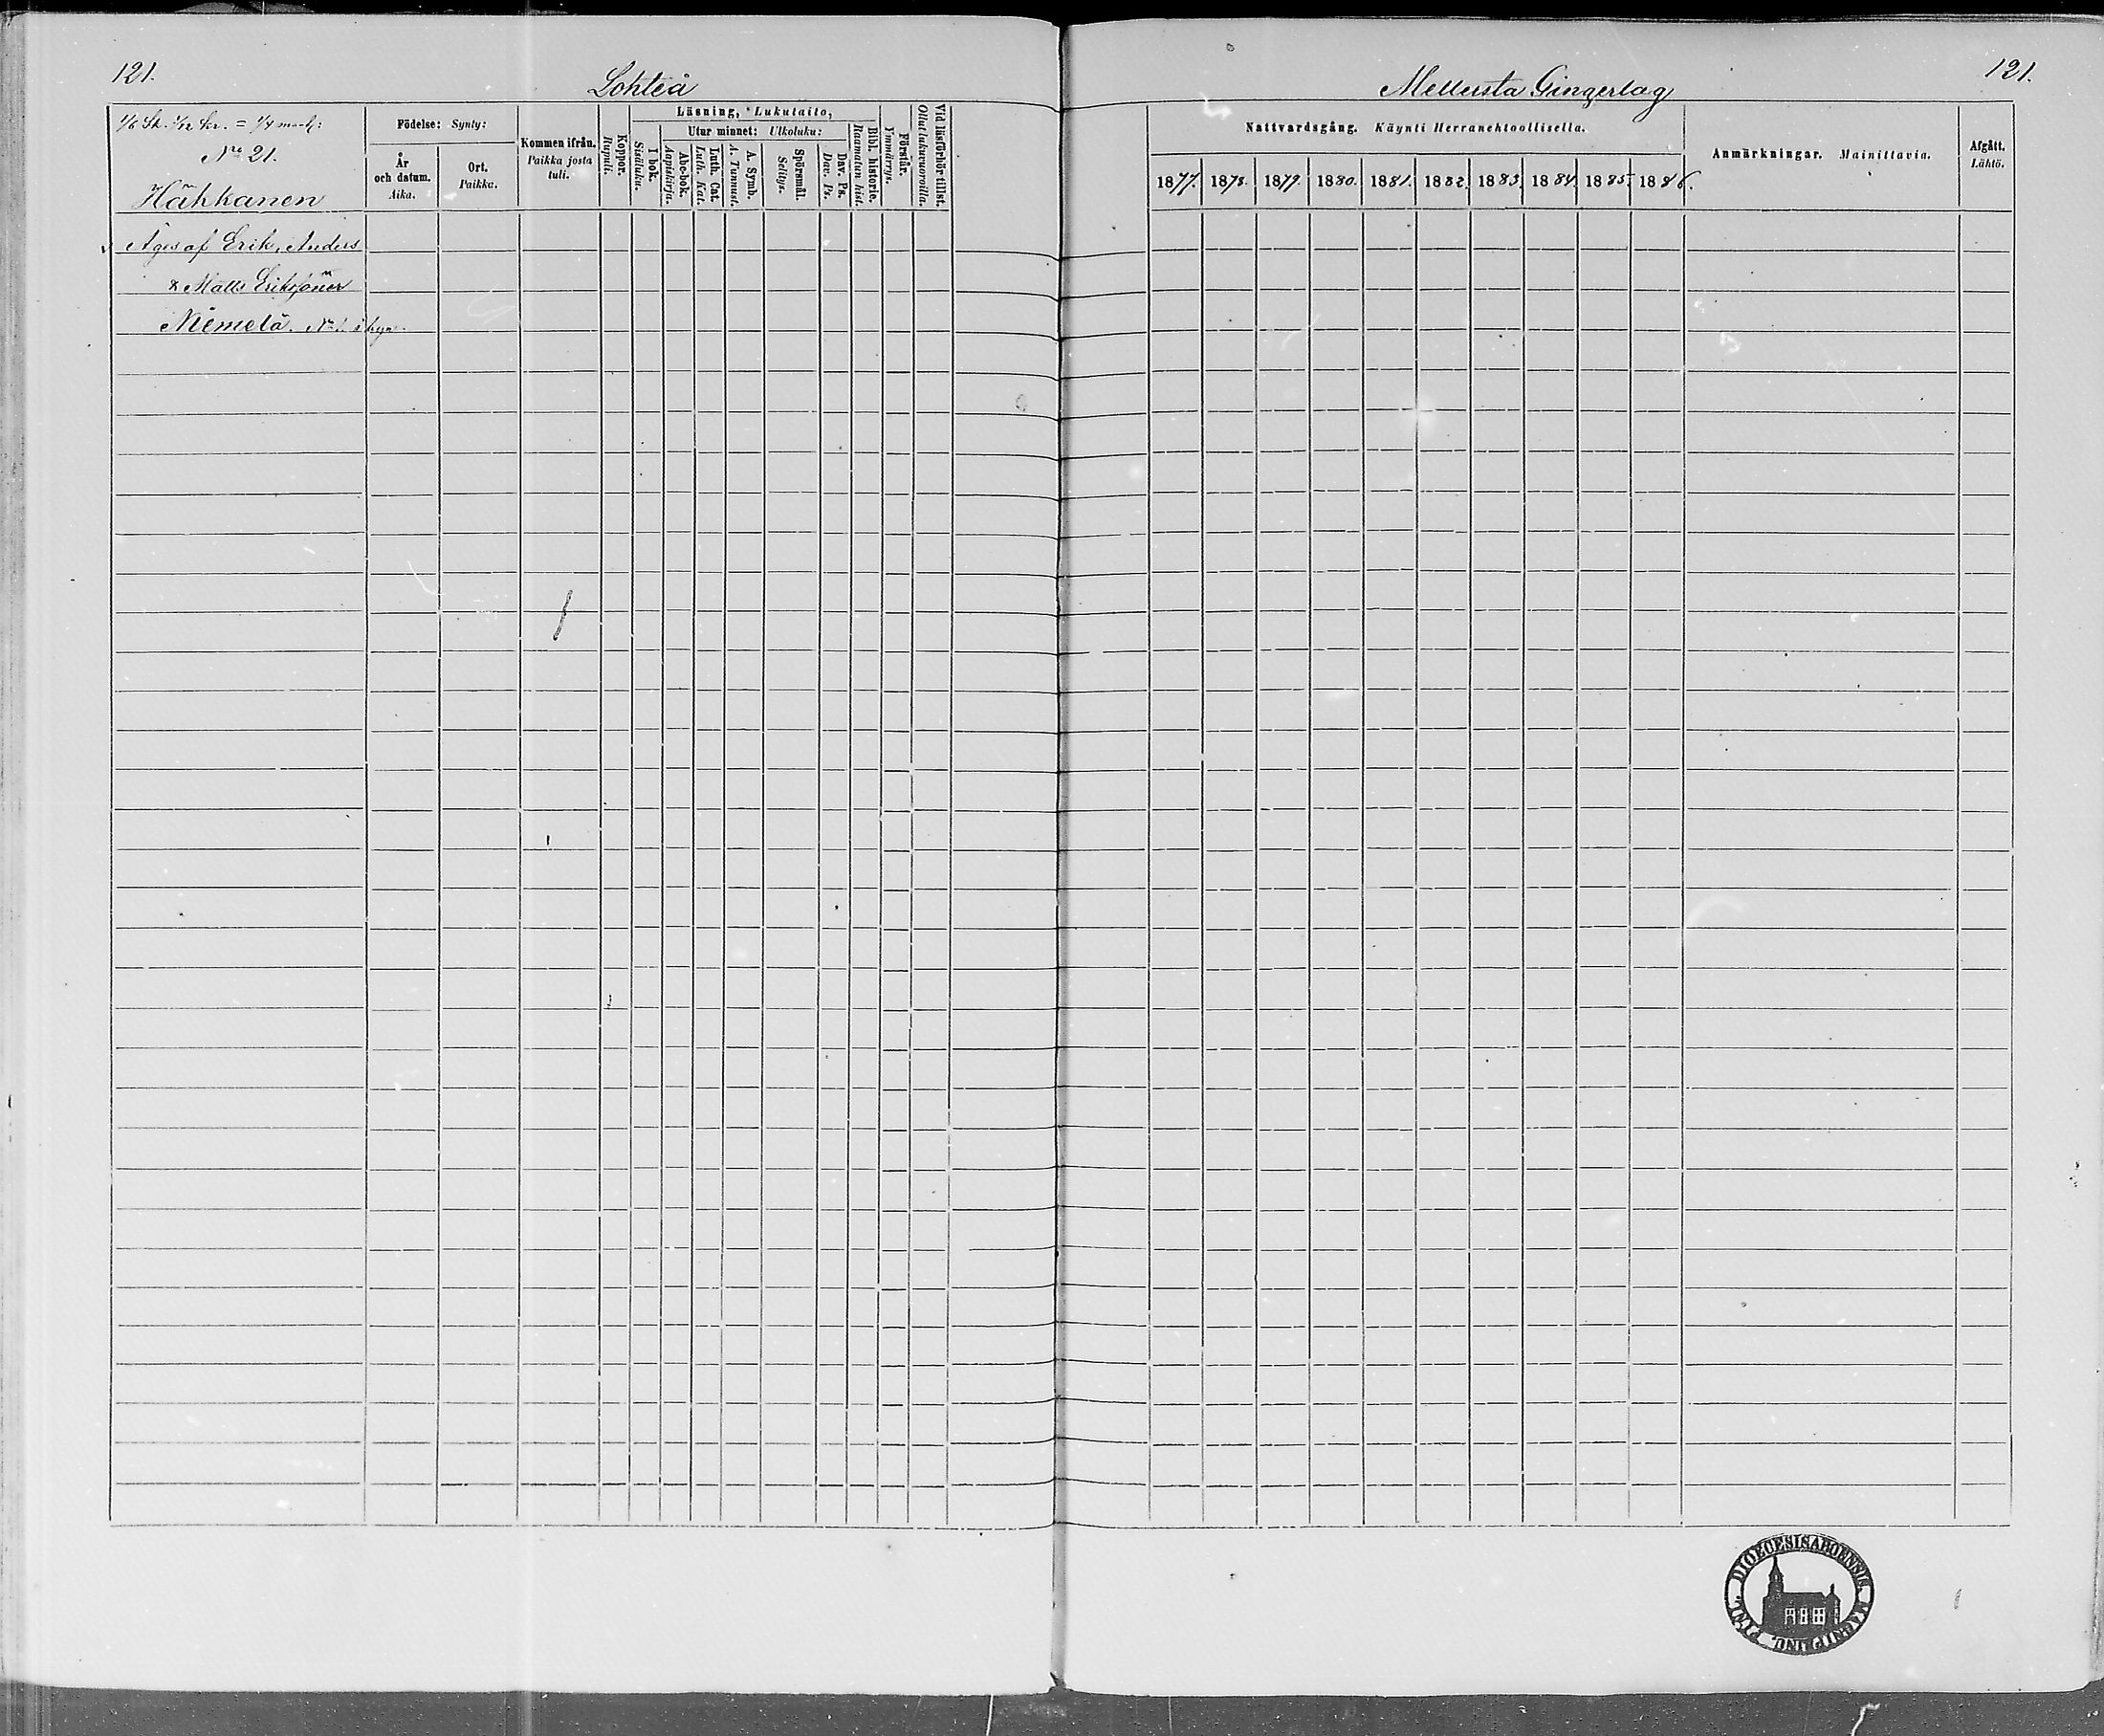 121.
Lohteå
1/6 Sk. 1/12 kr. = 1/4 mant:
No 21.
Häkkanen
Födelse: Synty:
År och datum. Aika.
Ort. Paikka.
Kommen ifrån. Paikka josta tuli.
Koppor. Rupuli.
Läsning, Lukutaito,
I bok. Sisäluku.
Utur minnet: Ulkoluku:
Abc-bok. Aapiskirja.
Luth. Cat. Luth. Kat.
A. Symb. A. Tunnust.
Spörsmål. Selitys.
Dav. Ps. Dav. Ps.
Bibl. historie. Raamatun hist.
Förstår. Ymmärrys.
Vid läsförhör tillst. Ollut lukuvuorolla.
Äges af Erik, Anders
& Matts Erikssöner
Niemelä. No 1. i bya.
Mellersta Gingerlag
121.
Nattvardsgång. Käynti Herranehtoollisella.
1877. 1878. 1879. 1880. 1881. 1882. 1883. 1884. 1885. 1886.
Anmärkningar. Mainittavia.
Afgått. Lähtö.
DIOECESIS ABOENSIS